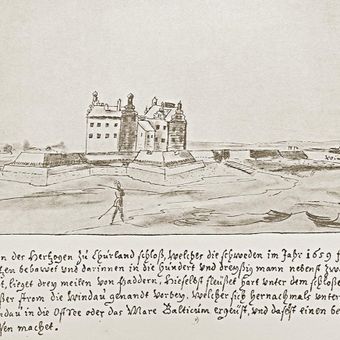 n des Hertzogen zu Churland schloß, welches die schweden im Jahr 1659 f
tzen bebawet und darinnen in die hundert und dreyßig mann nebenst zwe
t, lieget drey meilen von Haddern. Hieselbst fleüßet hart unter dem schloße
ßer strom die Windau genandt vorbey. Welcher sich hernachmals unter
indau in die Ost See oder das Mare Balticum ergeüst, und daselbst einen be
fen machet.